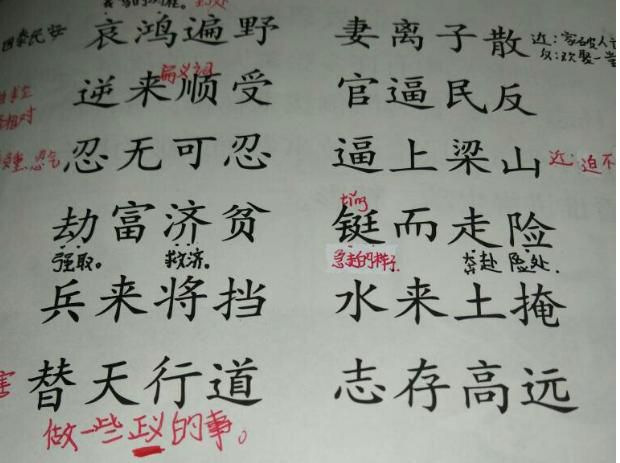 国泰民安 哀鸿遍野 妻离子散 近:家破人
反:欢聚一堂
偏义词
逆来顺受 官逼民反
相对
忍气 忍无可忍 逼上梁山 近:迫不
tǐng
劫富济贫 铤而走险
强取。 救济。 急走的样子. 奔赴 险处.
兵来将挡 水来土掩
害 替天行道 志存高远
做一些正义的事。